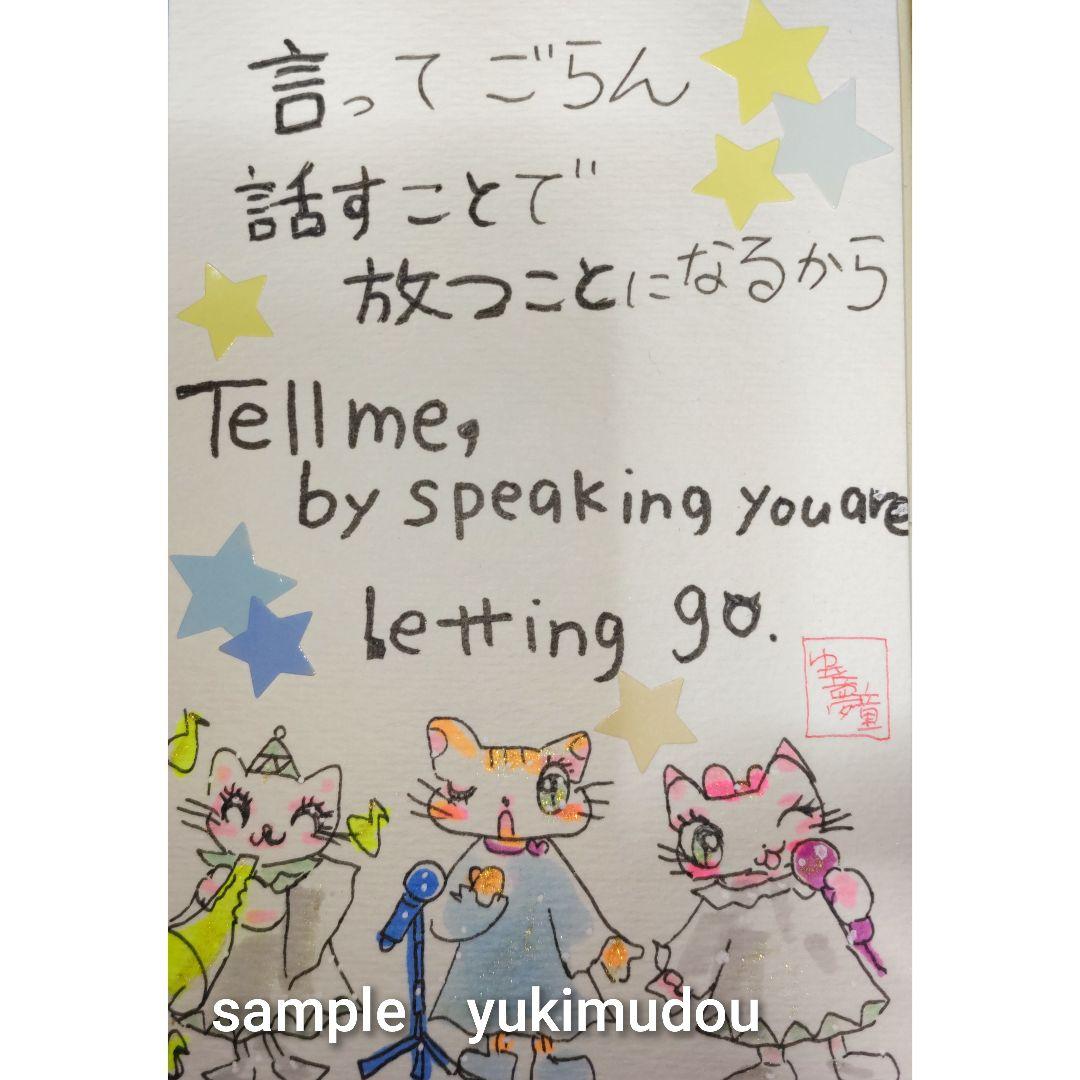 言ってごらん
話すことで
放つことになるから
Tell me,
by speaking you are
letting go.
ゆき夢童
sample yukimudou